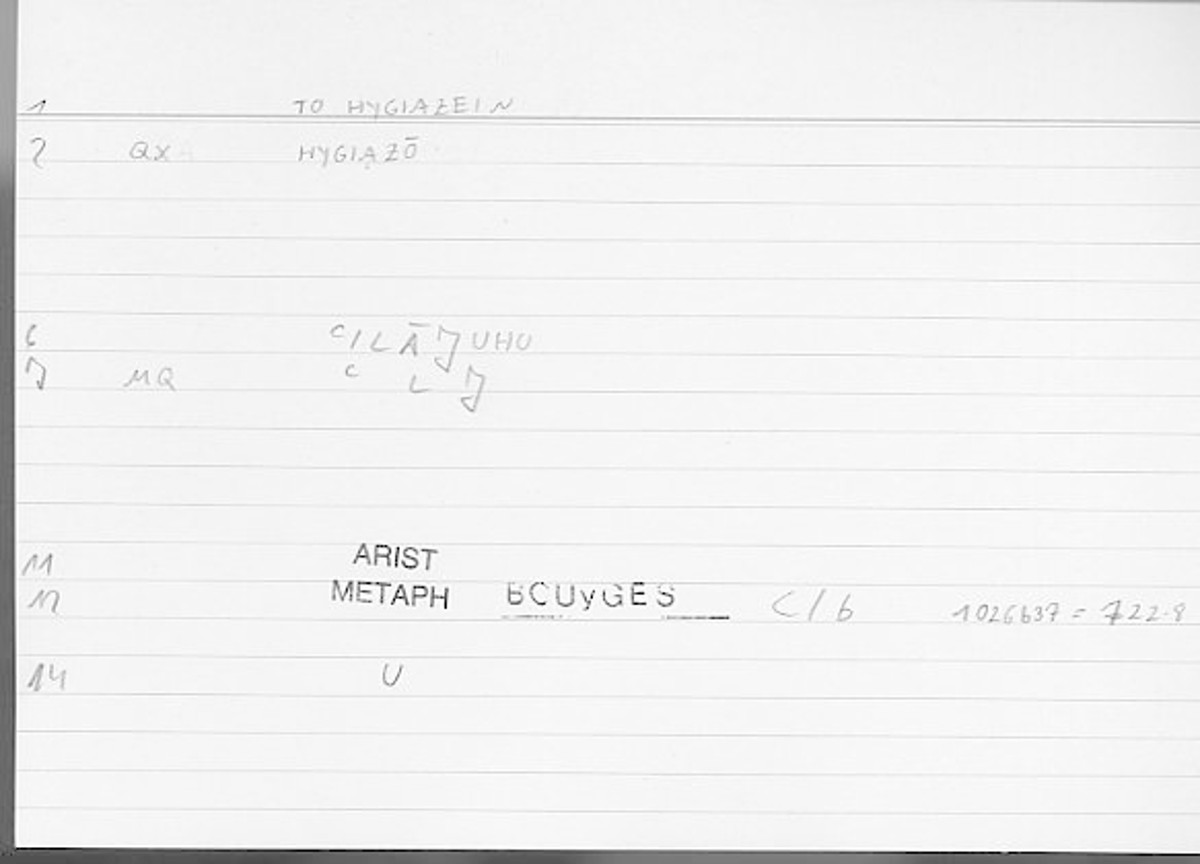 1 TO HYGIAZEIN
2 QX HYGIAZŌ
6 ᶜILĀJUHU
7 MQ ᶜ L J
11 ARIST
12 METAPH BOUyGES C/b 1026b37 = 722.8
14 U